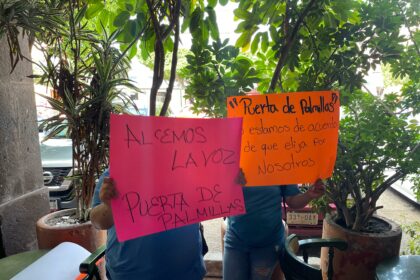 ALCEMOS
LA VOZ
PUERTA DE
PALMILLAS
"Puerta de Palmillas"
estamos de acuerdo
de que elija por
Nosotros